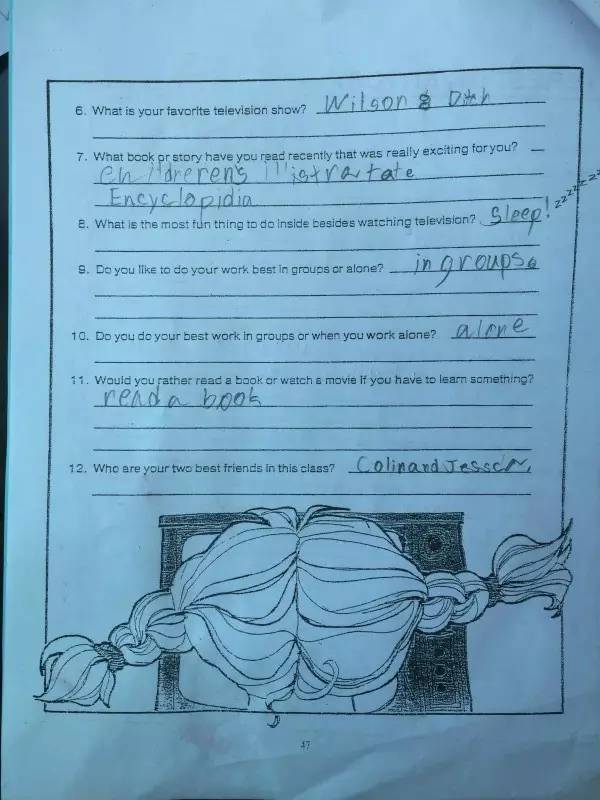 6. What is your favorite television show? Wilson & Ditch
7. What book or story have you read recently that was really exciting for you?
Childreren's Illistratate
Encyclopidia
8. What is the most fun thing to do inside besides watching television? Sleep! zzzzzzz
9. Do you like to do your work best in groups or alone? in groups.
10. Do you do your best work in groups or when you work alone? alone
11. Would you rather read a book or watch a movie if you have to learn something?
read a book
12. Who are your two best friends in this class? Colin and
47